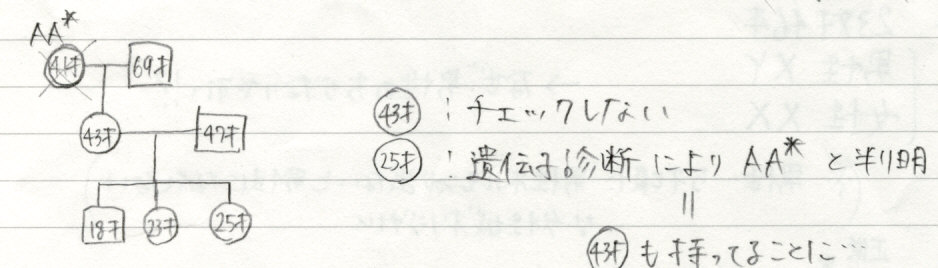 AA*
41才 69才
43才 47才
18才 23才 25才
43才 : チェックしない
25才 : 遺伝子診断により AA* と判明
=
43才 も持ってることに…